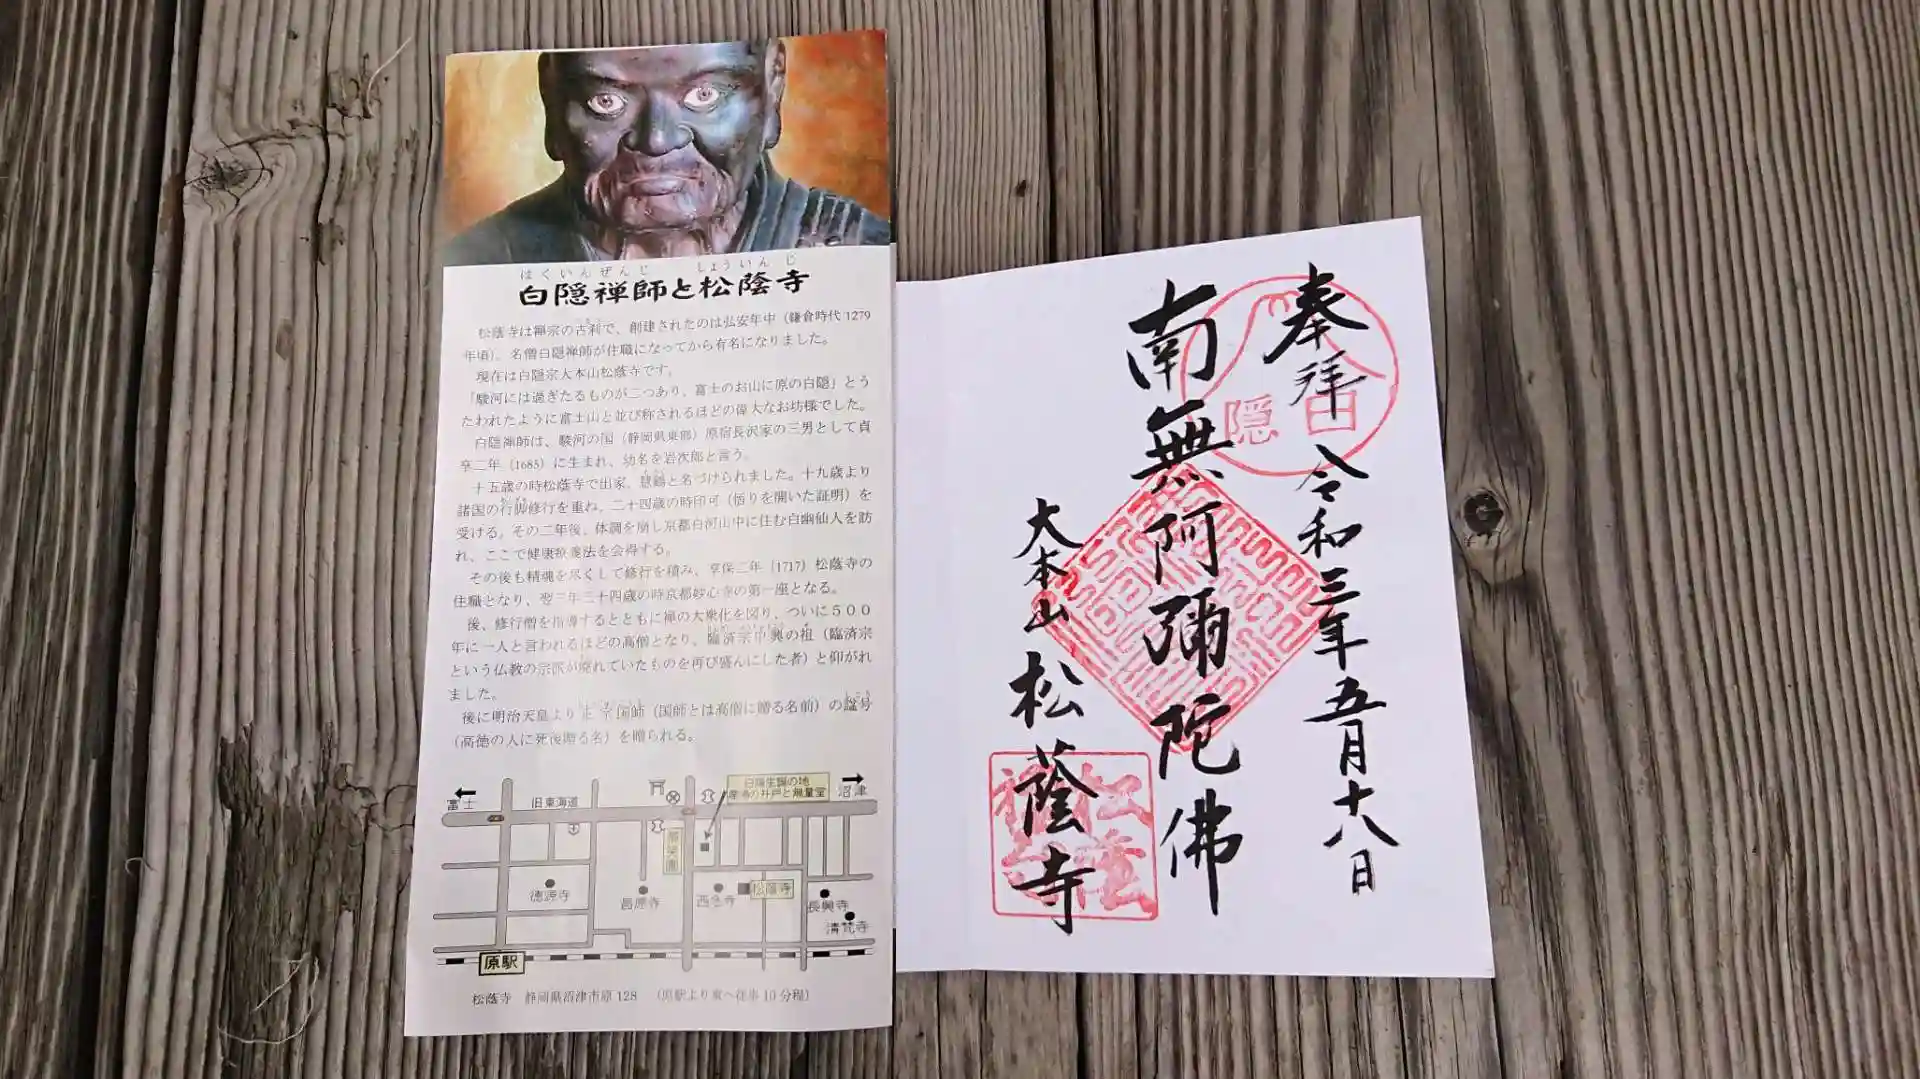 はくいんぜんじ しょういんじ
白隠禅師と松蔭寺
松蔭寺は禅宗の古刹で、創建されたのは弘安年中（鎌倉時代1279
年頃）。名僧白隠禅師が住職になってから有名になりました。
現在は白隠宗大本山松蔭寺です。
「駿河には過ぎたるものが二つあり、富士のお山に原の白隠」とう
たわれたように富士山と並び称されるほどの偉大なお坊様でした。
白隠禅師は、駿河の国（静岡県東部）原宿長沢家の三男として貞
享二年（1685）に生まれ、幼名を岩次郎と言う。
十五歳の時松蔭寺で出家、慧鶴と名づけられました。十九歳より
諸国の行脚修行を重ね、二十四歳の時印可（悟りを開いた証明）を
受ける。その二年後、体調を崩し京都白河山中に住む白幽仙人を訪
れ、ここで健康療養法を会得する。
その後も精魂を尽くして修行を積み、享保二年（1717）松蔭寺の
住職となり、翌三年三十四歳の時京都妙心寺の第一座となる。
後、修行僧を指導するとともに禅の大衆化を図り、ついに５００
年に一人と言われるほどの高僧となり、臨済宗中興の祖（臨済宗
という仏教の宗派が廃れていたものを再び盛んにした者）と仰がれ
ました。
後に明治天皇より正宗国師（国師とは高僧に贈る名前）の諡号
（高徳の人に死後贈る名）を贈られる。
富士
旧東海道
白隠生誕の地
産湯の井戸と無量堂
沼津
徳源寺
昌原寺
西念寺
松蔭寺
長興寺
清梵寺
原駅
松蔭寺 静岡県沼津市原128 （原駅より東へ徒歩10分程）
奉拝 令和三年五月十八日
白隠
南無阿彌陀佛
大本山 松蔭寺